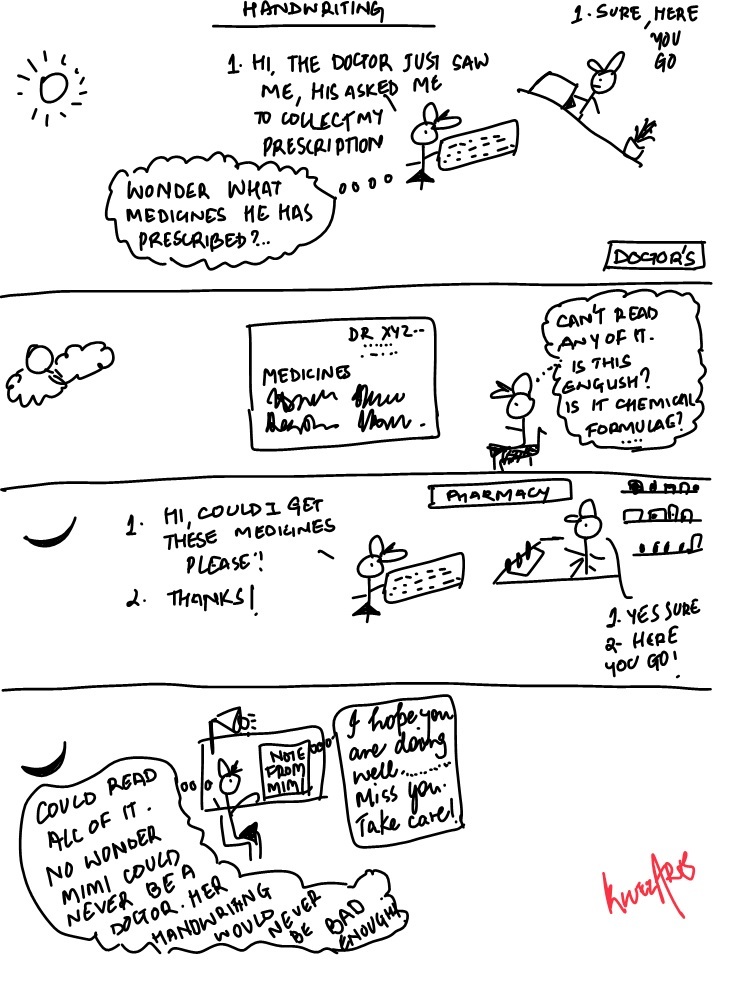 HANDWRITING
1. HI, THE DOCTOR JUST SAW
ME, HIS ASKED ME
TO COLLECT MY
PRESCRIPTION
1. SURE, HERE
YOU
GO
WONDER WHAT
MEDICINES HE HAS
PRESCRIBED?...
DOCTOR'S
DR XYZ--
MEDICINES
CAN'T READ
ANY OF IT.
IS THIS
ENGLISH?
IS IT CHEMICAL
FORMULAE?
....
PHARMACY
1. HI, COULD I GET
THESE MEDICINES
PLEASE?!
2. THANKS!
1. YES SURE
2- HERE
YOU GO!
NOTE
FROM
MIMI
I hope you
are doing
well........
Miss you.
Take care!
COULD READ
ALL OF IT.
NO WONDER
MIMI COULD
NEVER BE A
DOCTOR. HER
HANDWRITING
WOULD NEVER
BE BAD
ENOUGH!